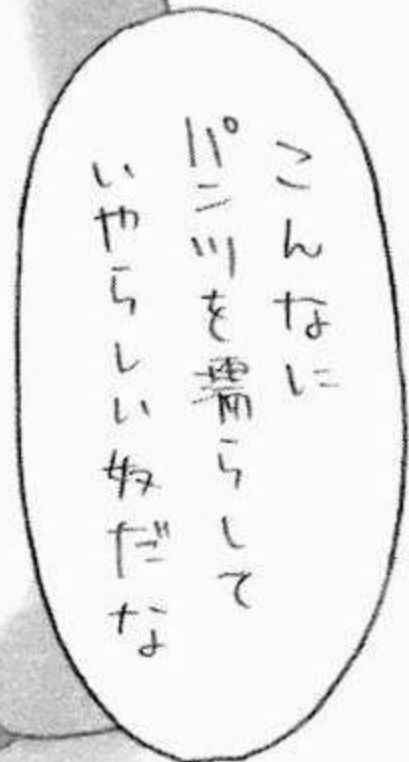 こんなに
パンツを濡らして
いやらしい奴だな